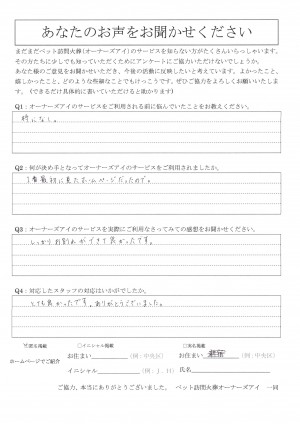 あなたのお声をお聞かせください
まだまだペット訪問火葬(オーナーズアイ)のサービスを知らない方がたくさんいらっしゃいます。
その方たちに少しでも知っていただくためにアンケートにご協力いただけないでしょうか。
あなた様のご意見をお聞かせいただき、今後の活動に反映したいと考えています。よかったこと、
嬉しかったこと、どのような些細なことでもけっこうです。ぜひご協力をよろしくお願いいたしま
す。《できるだけ具体的に書いていただけると助かります》
Q1：オーナーズアイのサービスをご利用される前に悩んでいたことをお教えください。
特になし。
Q2：何が決め手となってオーナーズアイのサービスをご利用されましたか。
1番最初に見たホームページだったので。
Q3：オーナーズアイのサービスを実際にご利用なさってみての感想をお聞かせください。
しっかりお別れができて良かったです。
Q4：対応したスタッフの対応はいかがでしたか。
とても良かったです。ありがとうございました。
匿名掲載 □イニシャル掲載 □実名掲載
ホームページでご紹介
お住まい (例：中央区) お住まい (例：中央区)
イニシャル (例：J．H) 氏名
ご協力、本当にありがとうございました。 ペット訪問火葬オーナーズアイ 一同